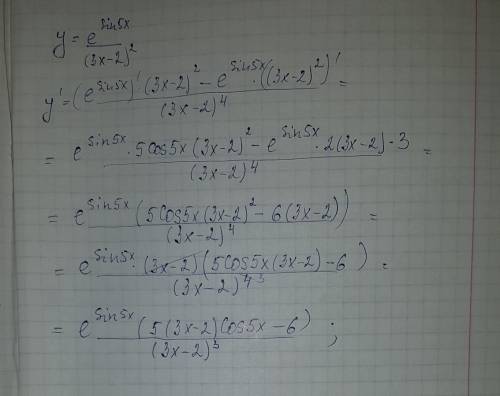 y = e^{sin5x} / (3x-2)^2
y' = (e^{sin5x})' (3x-2)^2 - e^{sin5x} · ((3x-2)^2)' / (3x-2)^4 =
= e^{sin5x} · 5cos5x (3x-2)^2 - e^{sin5x} · 2(3x-2) · 3 / (3x-2)^4 =
= e^{sin5x} (5cos5x (3x-2)^2 - 6(3x-2)) / (3x-2)^4 =
= e^{sin5x} · (3x-2) (5cos5x (3x-2) - 6) / (3x-2)^{4 3} =
= e^{sin5x} (5(3x-2) cos5x - 6) / (3x-2)^3 ;